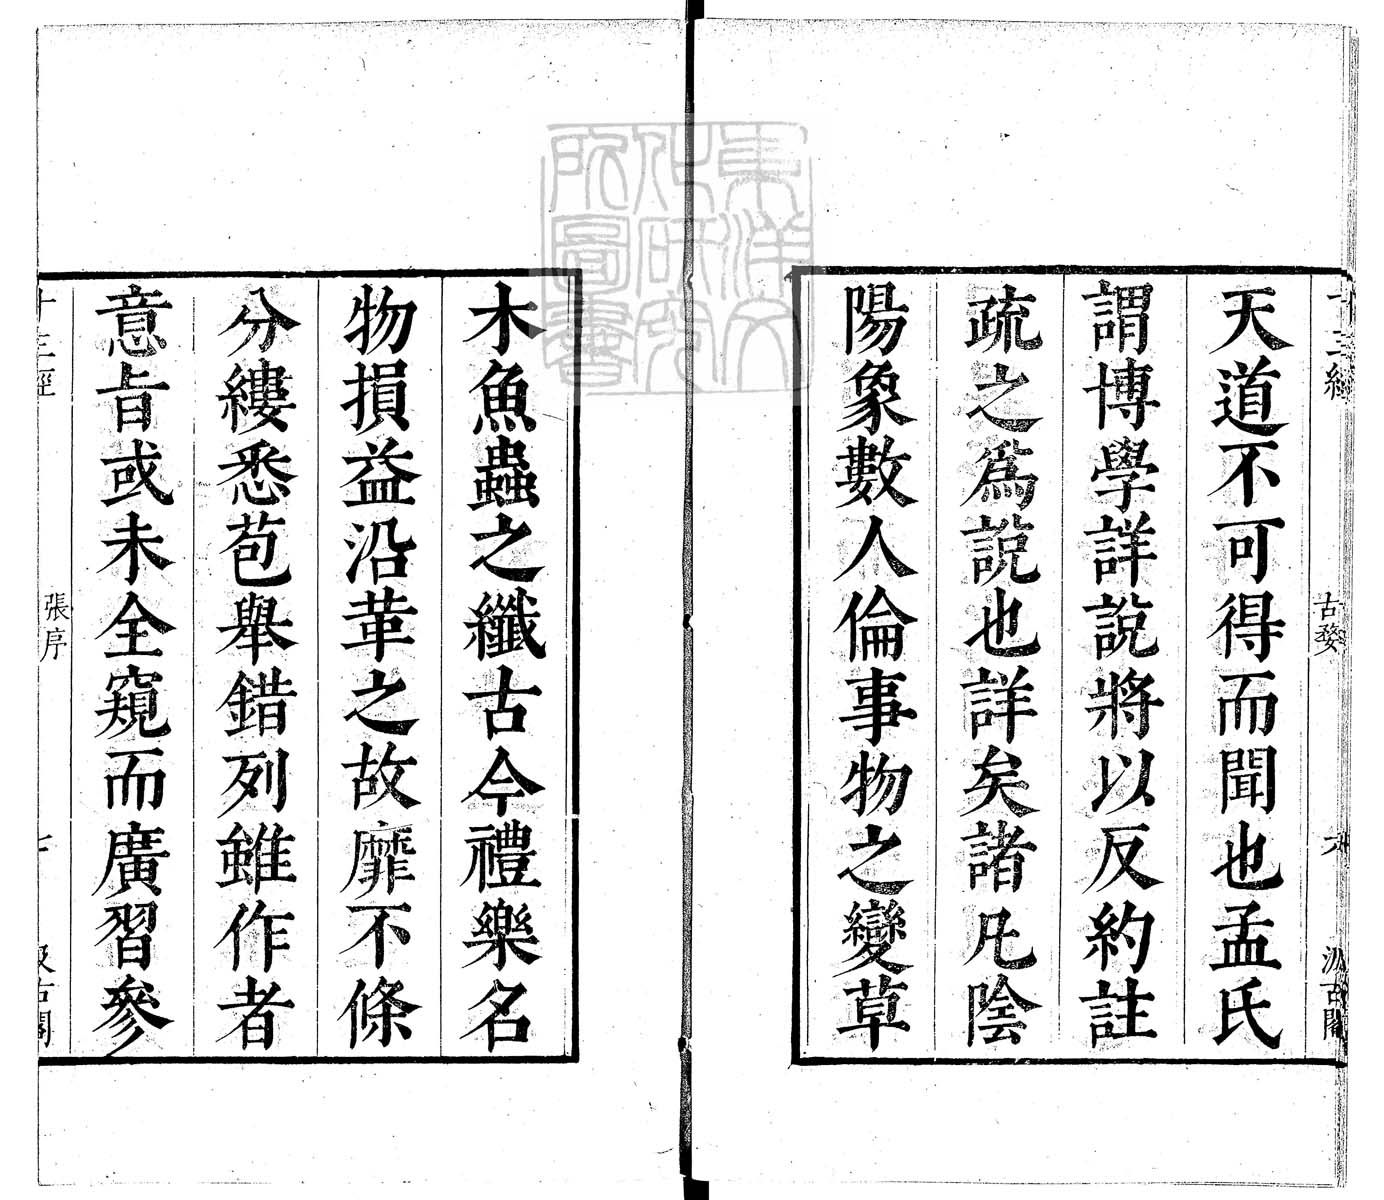 十三經
古婺
六
汲古閣
天道不可得而聞也孟氏
謂博學詳說將以反約註
疏之爲說也詳矣諸凡陰
陽象數人倫事物之變草
木魚蟲之纖古今禮樂名
物損益沿革之故靡不條
分縷悉苞舉錯列雖作者
意旨或未全窺而廣習參
十三經
張序
七
汲古閣
東洋文
化研究
所圖書